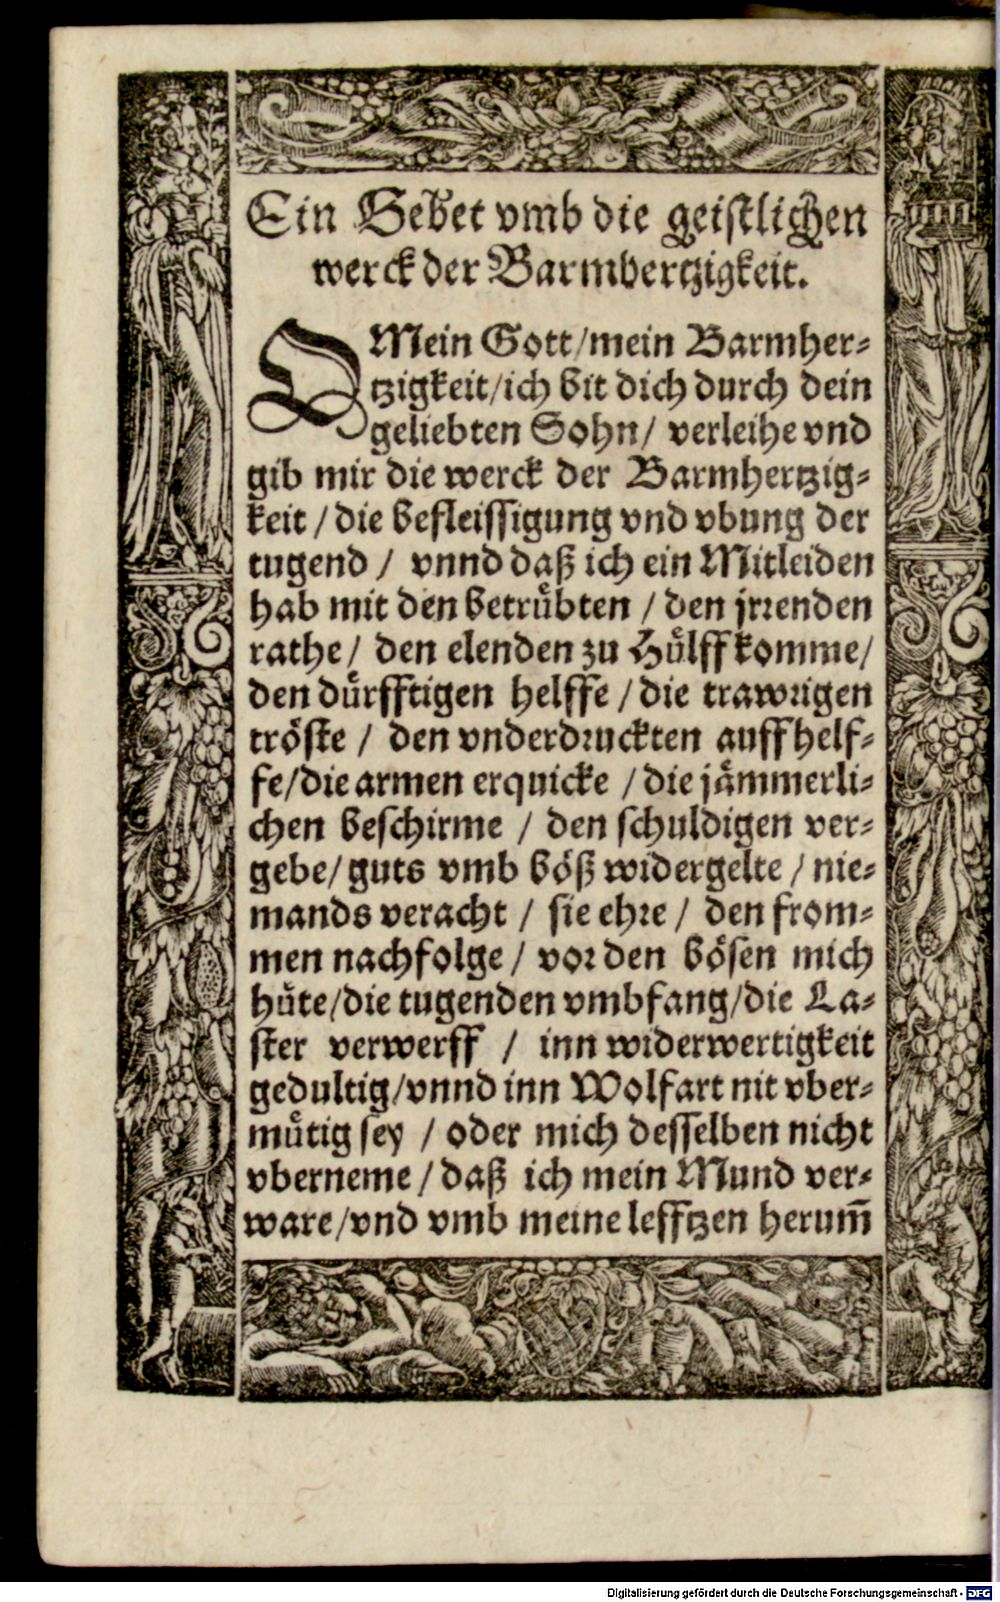 Ein Gebet vmb die geistlichen
werck der Barmhertzigkeit.
O Mein Gott/mein Barmher-
tzigkeit/ich bit dich durch dein
geliebten Sohn/ verleihe vnd
gib mir die werck der Barmhertzig-
keit/die befleissigung vnd vbung der
tugend/ vnnd daß ich ein Mitleiden
hab mit den betrübten/den jrrenden
rathe/ den elenden zu Hülff komme/
den dürfftigen helffe/die trawrigen
tröste/ den vnderdruckten auffhelf-
fe/die armen erquicke/die jämmerli-
chen beschirme/ den schuldigen ver-
gebe/guts vmb böß widergelte/nie-
mands veracht/ sie ehre/ den from-
men nachfolge/ vor den bösen mich
hüte/die tugenden vmbfang/die La-
ster verwerff/ inn widerwertigkeit
gedultig/vnnd inn Wolfart nit vber-
mütig sey/oder mich desselben nicht
vberneme/daß ich mein Mund ver-
ware/vnd vmb meine lefftzen herum̄
Digitalisierung gefördert durch die Deutsche Forschungsgemeinschaft - DFG